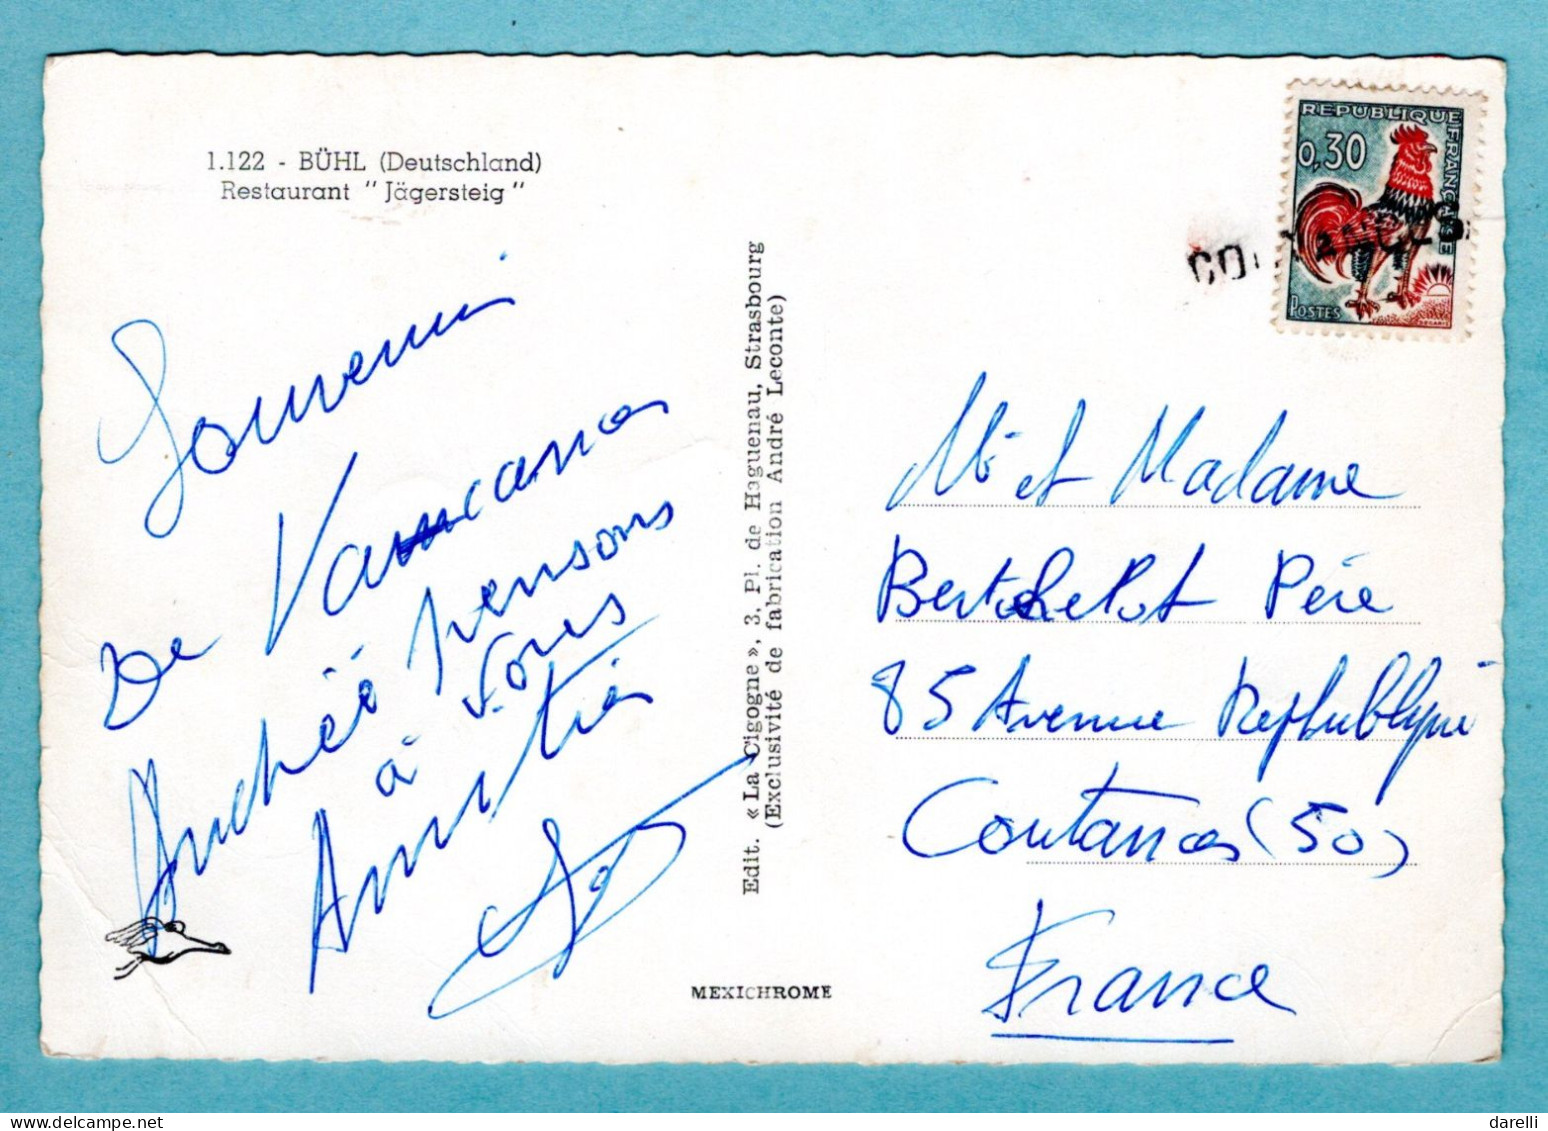 1.122 - BÜHL (Deutschland)
Restaurant "Jägersteig"
Souvenir
De Vacances
pensons
à vous
Amitiés
Edit. «La Cigogne», 3, Pl. de Haguenau, Strasbourg
(Exclusivité de fabrication André Leconte)
MEXICHROME
REPUBLIQUE FRANÇAISE
0,30
POSTES
DECARIS
COUTANCES
Mr et Madame
Berthelot Père
85 Avenue République
Coutances (50)
France
darelli